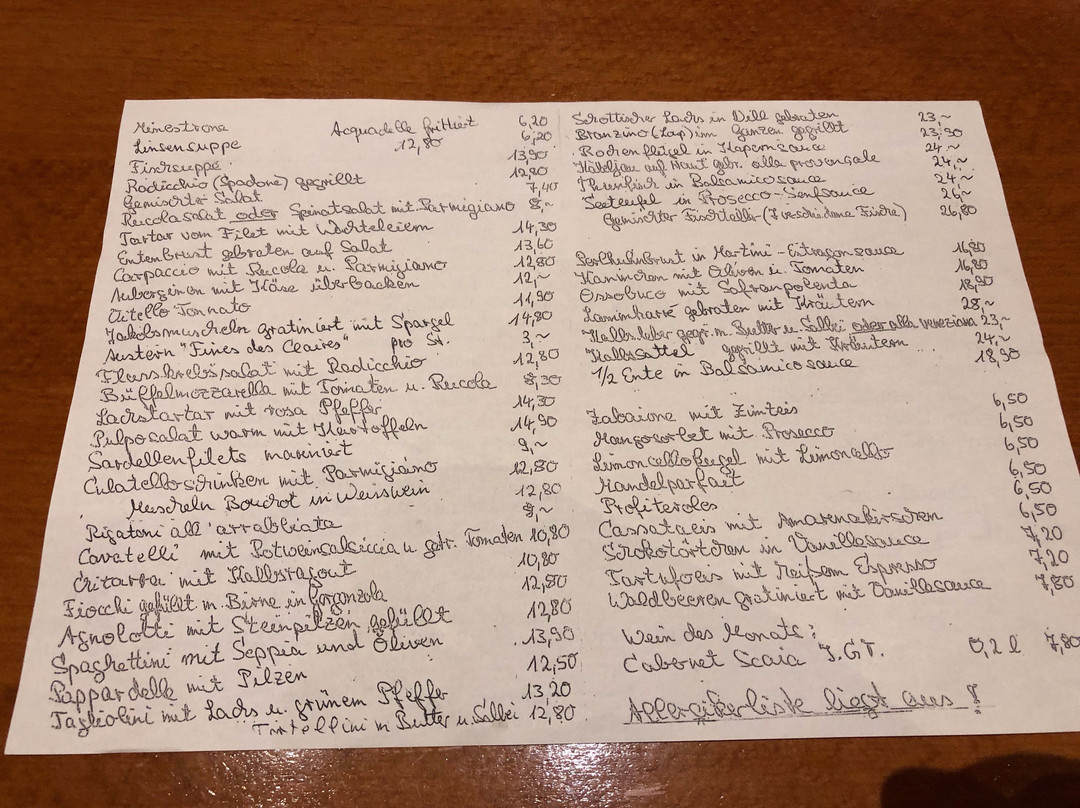 Minestrone 6,20
Acquadelle frittiert 12,80
Linsensuppe 6,20
Fischsuppe 13,90
Radicchio (Spadone) gegrillt 12,80
Gemischter Salat 7,40
Rucolasalat oder Spinatsalat mit Parmigiano 8,~
Tartar vom Filet mit Wachteleiern 14,30
Entenbrust gebraten auf Salat 13,60
Carpaccio mit Rucola u. Parmigiano 12,80
Auberginen mit Käse überbacken 12,~
Vitello Tonnato 11,90
Jakobsmuscheln gratiniert mit Spargel 14,80
Austern "Fines des Claires" pro St. 3,~
Flusskrebssalat mit Radicchio 12,80
Büffelmozzarella mit Tomaten u. Rucola 8,30
Lachstartar mit rosa Pfeffer 14,30
Pulposalat warm mit Kartoffeln 14,90
Sardellenfilets mariniert 9,~
Culatelloschinken mit Parmigiano 12,80
Muscheln Bouchot in Weisswein 12,80
Rigatoni all'arrabbiata 9,~
Cavatelli mit Rotweinsalsiccia u. getr. Tomaten 10,80
Chitarra mit Kalbsragout 10,80
Fiocchi gefüllt m. Birne in Gorgonzola 12,80
Agnolotti mit Steinpilzen gefüllt 12,80
Spaghettini mit Seppia und Oliven 13,90
Pappardelle mit Pilzen 12,50
Tagliolini mit Lachs u. grünem Pfeffer 13,20
Tortellini m Butter u. Salbei 12,80
Schottischer Lachs in Dill gebraten 23,~
Branzino (Lup) im Ganzen gegrillt 23,90
Rochenflügel in Kapernsauce 24,~
Kabeljau auf Haut gebr. alla provencale 24,~
Thunfisch in Balsamicosauce 24,~
Seeteufel in Prosecco-Senfsauce 26,~
Gemischter Fischteller (verschiedene Fische) 26,80
Perlhuhnbrust in Martini-Estragonsauce 16,80
Kaninchen mit Oliven u. Tomaten 16,80
Ossobuco mit Safranpolenta 18,90
Lammkarre gebraten mit Kräutern 28,~
Kalbsleber gegr. m. Butter u. Salbei oder alla veneziana 23,~
Kalbssattel gegrillt mit Kräutern 24,~
1/2 Ente in Balsamicosauce 18,90
Zabaione mit Zimteis 6,50
Mangosorbet mit Prosecco 6,50
Limoncellokugel mit Limoncello 6,50
Mandelparfait 6,50
Profiteroles 6,50
Cassataeis mit Amarenakirschen 6,50
Schokotörtchen in Vanillesauce 7,20
Tartufoeis mit heißem Espresso 7,20
Waldbeeren gratiniert mit Vanillesauce 7,80
Wein des Monats:
Cabernet Scaia I.G.T. 0,2 l 7,80
Allergikerliste liegt aus !